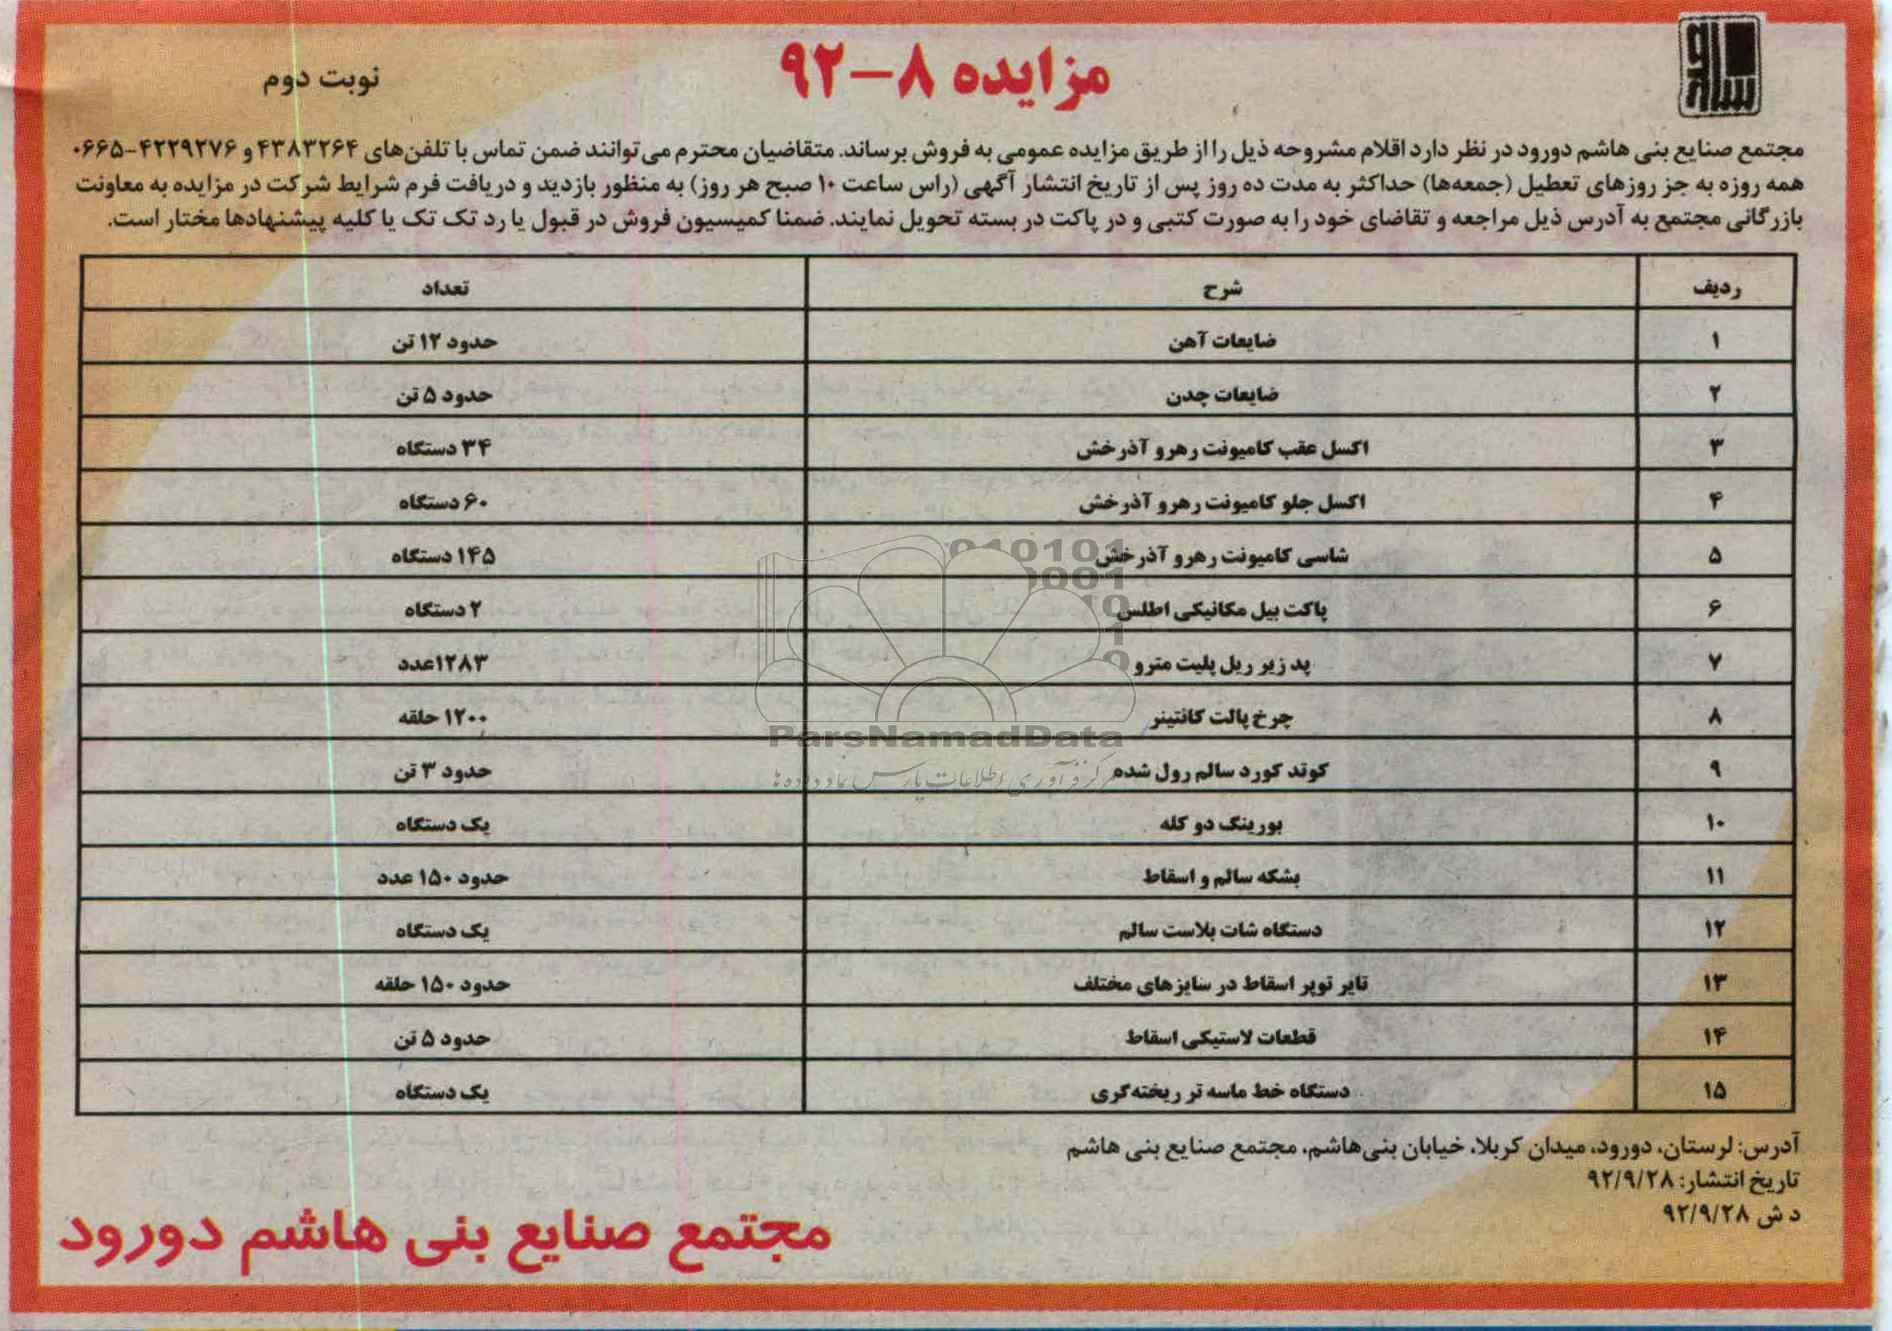 مزایده ۸–۹۲
نوبت دوم
مجتمع صنایع بنی هاشم دورود در نظر دارد اقلام مشروحه ذیل را از طریق مزایده عمومی به فروش برساند. متقاضیان محترم می‌توانند ضمن تماس با تلفن‌های ۴۳۸۳۲۶۴ و ۴۲۲۹۲۷۶-۰۶۶۵
همه روزه به جز روزهای تعطیل (جمعه‌ها) حداکثر به مدت ده روز پس از تاریخ انتشار آگهی (راس ساعت ۱۰ صبح هر روز) به منظور بازدید و دریافت فرم شرایط شرکت در مزایده به معاونت
بازرگانی مجتمع به آدرس ذیل مراجعه و تقاضای خود را به صورت کتبی و در پاکت در بسته تحویل نمایند. ضمنا کمیسیون فروش در قبول یا رد تک تک یا کلیه پیشنهادها مختار است.
ردیف شرح تعداد
۱ ضایعات آهن حدود ۱۲ تن
۲ ضایعات چدن حدود ۵ تن
۳ اکسل عقب کامیونت رهرو آذرخش ۳۴ دستگاه
۴ اکسل جلو کامیونت رهرو آذرخش ۶۰ دستگاه
۵ شاسی کامیونت رهرو آذرخش ۱۴۵ دستگاه
۶ پاکت بیل مکانیکی اطلس ۲ دستگاه
۷ پد زیر ریل پلیت مترو ۱۲۸۳عدد
۸ چرخ پالت کانتینر ۱۲۰۰ حلقه
۹ کوتد کورد سالم رول شده حدود ۳ تن
۱۰ بورینگ دو کله یک دستگاه
۱۱ بشکه سالم و اسقاط حدود ۱۵۰ عدد
۱۲ دستگاه شات بلاست سالم یک دستگاه
۱۳ تایر توپر اسقاط در سایزهای مختلف حدود ۱۵۰ حلقه
۱۴ قطعات لاستیکی اسقاط حدود ۵ تن
۱۵ دستگاه خط ماسه تر ریخته‌گری یک دستگاه
ParsNamadData
مرکز فرآوری اطلاعات پارس نماد داده‌ها
آدرس: لرستان، دورود، میدان کربلا، خیابان بنی‌هاشم، مجتمع صنایع بنی هاشم
تاریخ انتشار: ۹۲/۹/۲۸
د ش ۹۲/۹/۲۸
مجتمع صنایع بنی هاشم دورود